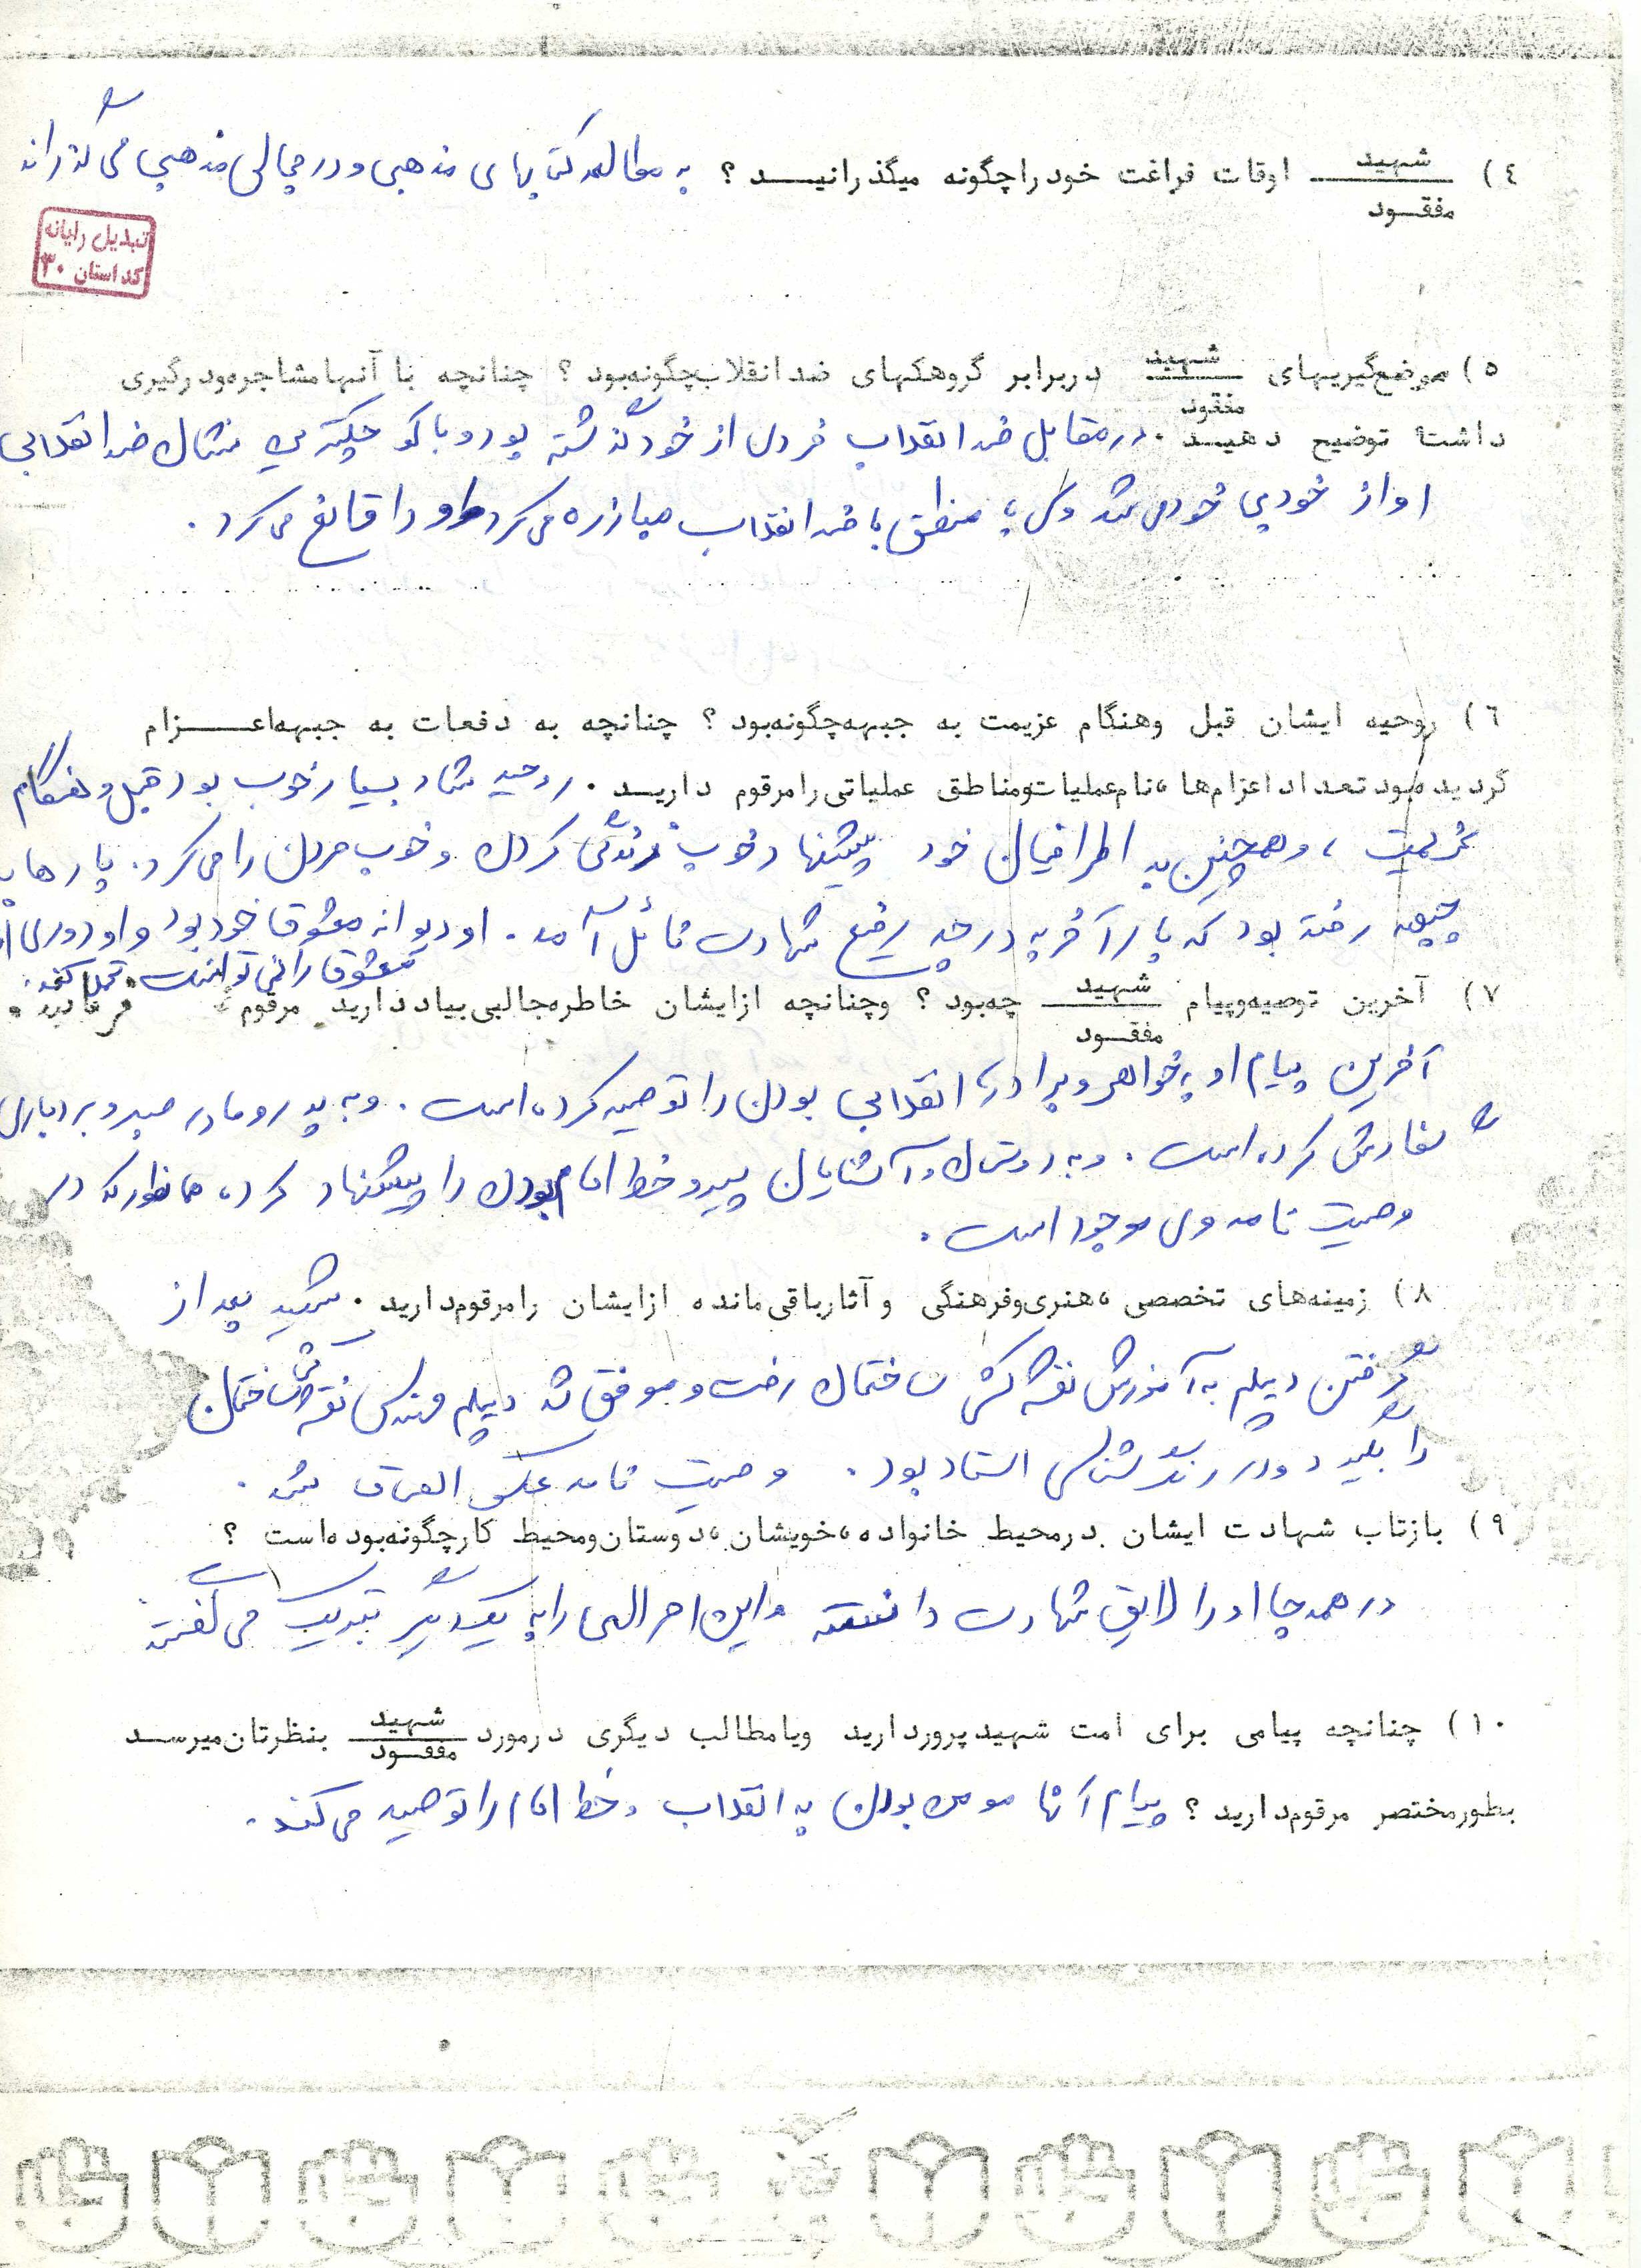 ٤) شهید / مفقود اوقات فراغت خود را چگونه میگذرانید ؟ به مطالعه کتابهای مذهبی و در مجالس مذهبی می گذراند
تبدیل رایانه
کد استان ۳۰
٥) موضع‌گیریهای شهید / مفقود در برابر گروهکهای ضد انقلاب چگونه بود ؟ چنانچه با آنها مشاجره و درگیری
داشت توضیح دهید . در مقابل ضد انقلاب فردی از خود گذشته بود و با کوچکترین ضد انقلابی
او از خود بی خود می شد ولی با منطق با ضد انقلاب مبارزه می کرد و او را قانع می کرد .
٦) روحیه ایشان قبل و هنگام عزیمت به جبهه چگونه بود ؟ چنانچه به دفعات به جبهه اعزام
گردیده بود تعداد اعزام‌ها ، نام عملیات و مناطق عملیاتی را مرقوم دارید . روحیه شاد بسیار خوب بود قبل و هنگام
عزیمت ، و همچنین به اطرافیان خود پیشنهاد خوب زندگی کردن و خوب مردن را می کرد . بارها به
جبهه رفته بود که بار آخر به درجه رفیع شهادت نائل آمد . او دیوانه معشوق خود بود و او دوری از
معشوق را نمی توانست تحمل کند .
٧) آخرین توصیه و پیام شهید / مفقود چه بود ؟ و چنانچه از ایشان خاطره جالبی بیاد دارید مرقوم فرمائید .
آخرین پیام او به خواهر و برادران انقلابی بودن را توصیه کرده است . و به پدر و مادر صبر و بردباری
سفارش کرده است . و به دوستان و آشنایان پیرو خط امام بودن را پیشنهاد کرده همانطور که در
وصیت نامه وی موجود است .
٨) زمینه‌های تخصصی ، هنری و فرهنگی و آثار باقی مانده از ایشان را مرقوم دارید . شهید بعد از
گرفتن دیپلم به آموزش نقشه کشی ساختمان رفت و موفق شد دیپلم مهندسی نقشه کشی ساختمان
را بگیرد و در رنگ شناسی استاد بود . وصیت نامه
٩) بازتاب شهادت ایشان در محیط خانواده ، خویشان ، دوستان و محیط کار چگونه بوده است ؟
در همه جا او را لایق شهادت دانسته و این امر الهی را به یکدیگر تبریک می گفتند
١٠) چنانچه پیامی برای امت شهید پرور دارید و یا مطالب دیگری در مورد شهید / مفقود بنظرتان میرسد
بطور مختصر مرقوم دارید ؟ پیام آنها مومن بودن به انقلاب و خط امام را توصیه می کند .